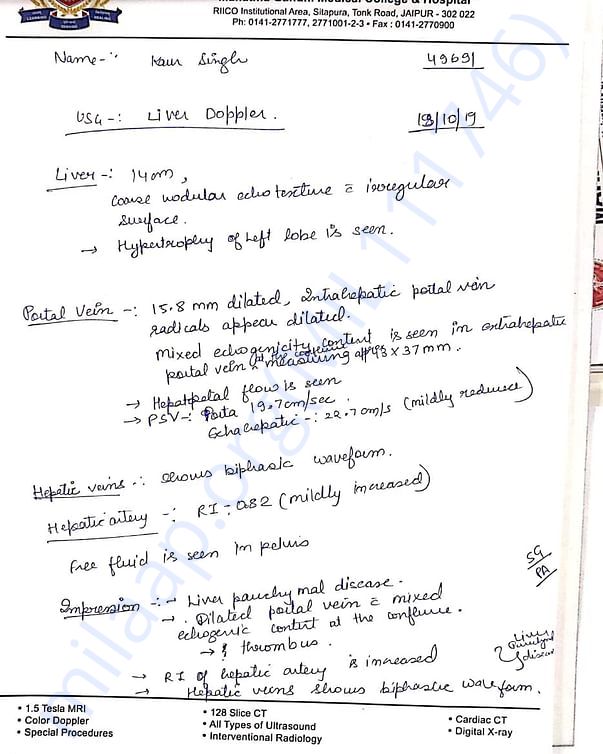 Medical College & Hospital
RIICO Institutional Area, Sitapura, Tonk Road, JAIPUR - 302 022
Ph: 0141-2771777, 2771001-2-3 • Fax : 0141-2770900
LEARNING SERVICE HEALING
Name -: Kaur Singh 49691
USG -: Liver Doppler. 18/10/19
Liver -: 14cm,
Coarse nodular echotexture c̄ irregular
surface.
→ Hypertrophy of left lobe is seen.
Portal Vein -: 15.8 mm dilated, Intrahepatic portal vein
radicals appear dilated.
mixed echogenicity content is seen in extrahepatic
portal vein at the confluence measuring 13 x 37 mm.
→ Hepatopetal flow is seen
→ PSV -: Porta 19.7cm/sec.
22.7cm/s (mildly reduced)
Hepatic veins -: shows biphasic waveform.
Hepatic artery -: RI - 0.82 (mildly increased)
Free fluid is seen in pelvis
SG
PA
Impression -: → Liver parenchymal disease.
→ Dilated portal vein c̄ mixed
echogenic content at the confluence.
→ ? thrombus.
→ RI of hepatic artery is increased
→ Hepatic veins shows biphasic waveform.
Liver
disease
• 1.5 Tesla MRI
• Color Doppler
• Special Procedures
• 128 Slice CT
• All Types of Ultrasound
• Interventional Radiology
• Cardiac CT
• Digital X-ray
milaap.org(MIL111746)